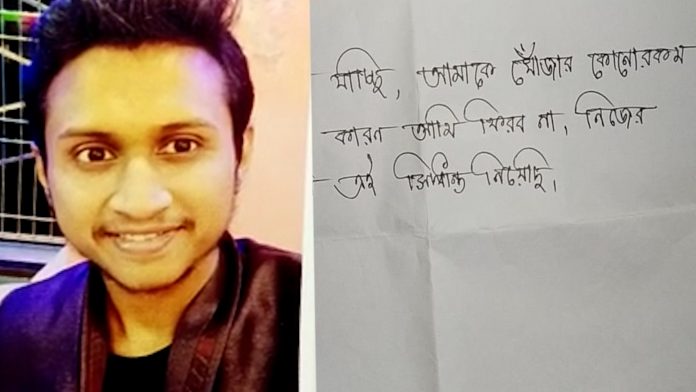 যাচ্ছি, আমাকে খোঁজার কোনোরকম
কারন আমি ফিরব না, নিজের
এই সিদ্ধান্ত নিয়েছি,